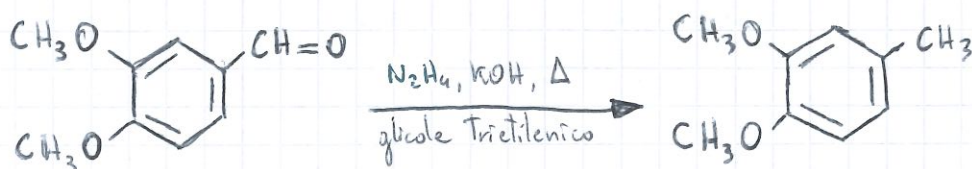 CH₃O
CH=O
CH₃O
N₂H₄, KOH, Δ
glicole Trietilenico
CH₃O
CH₃
CH₃O